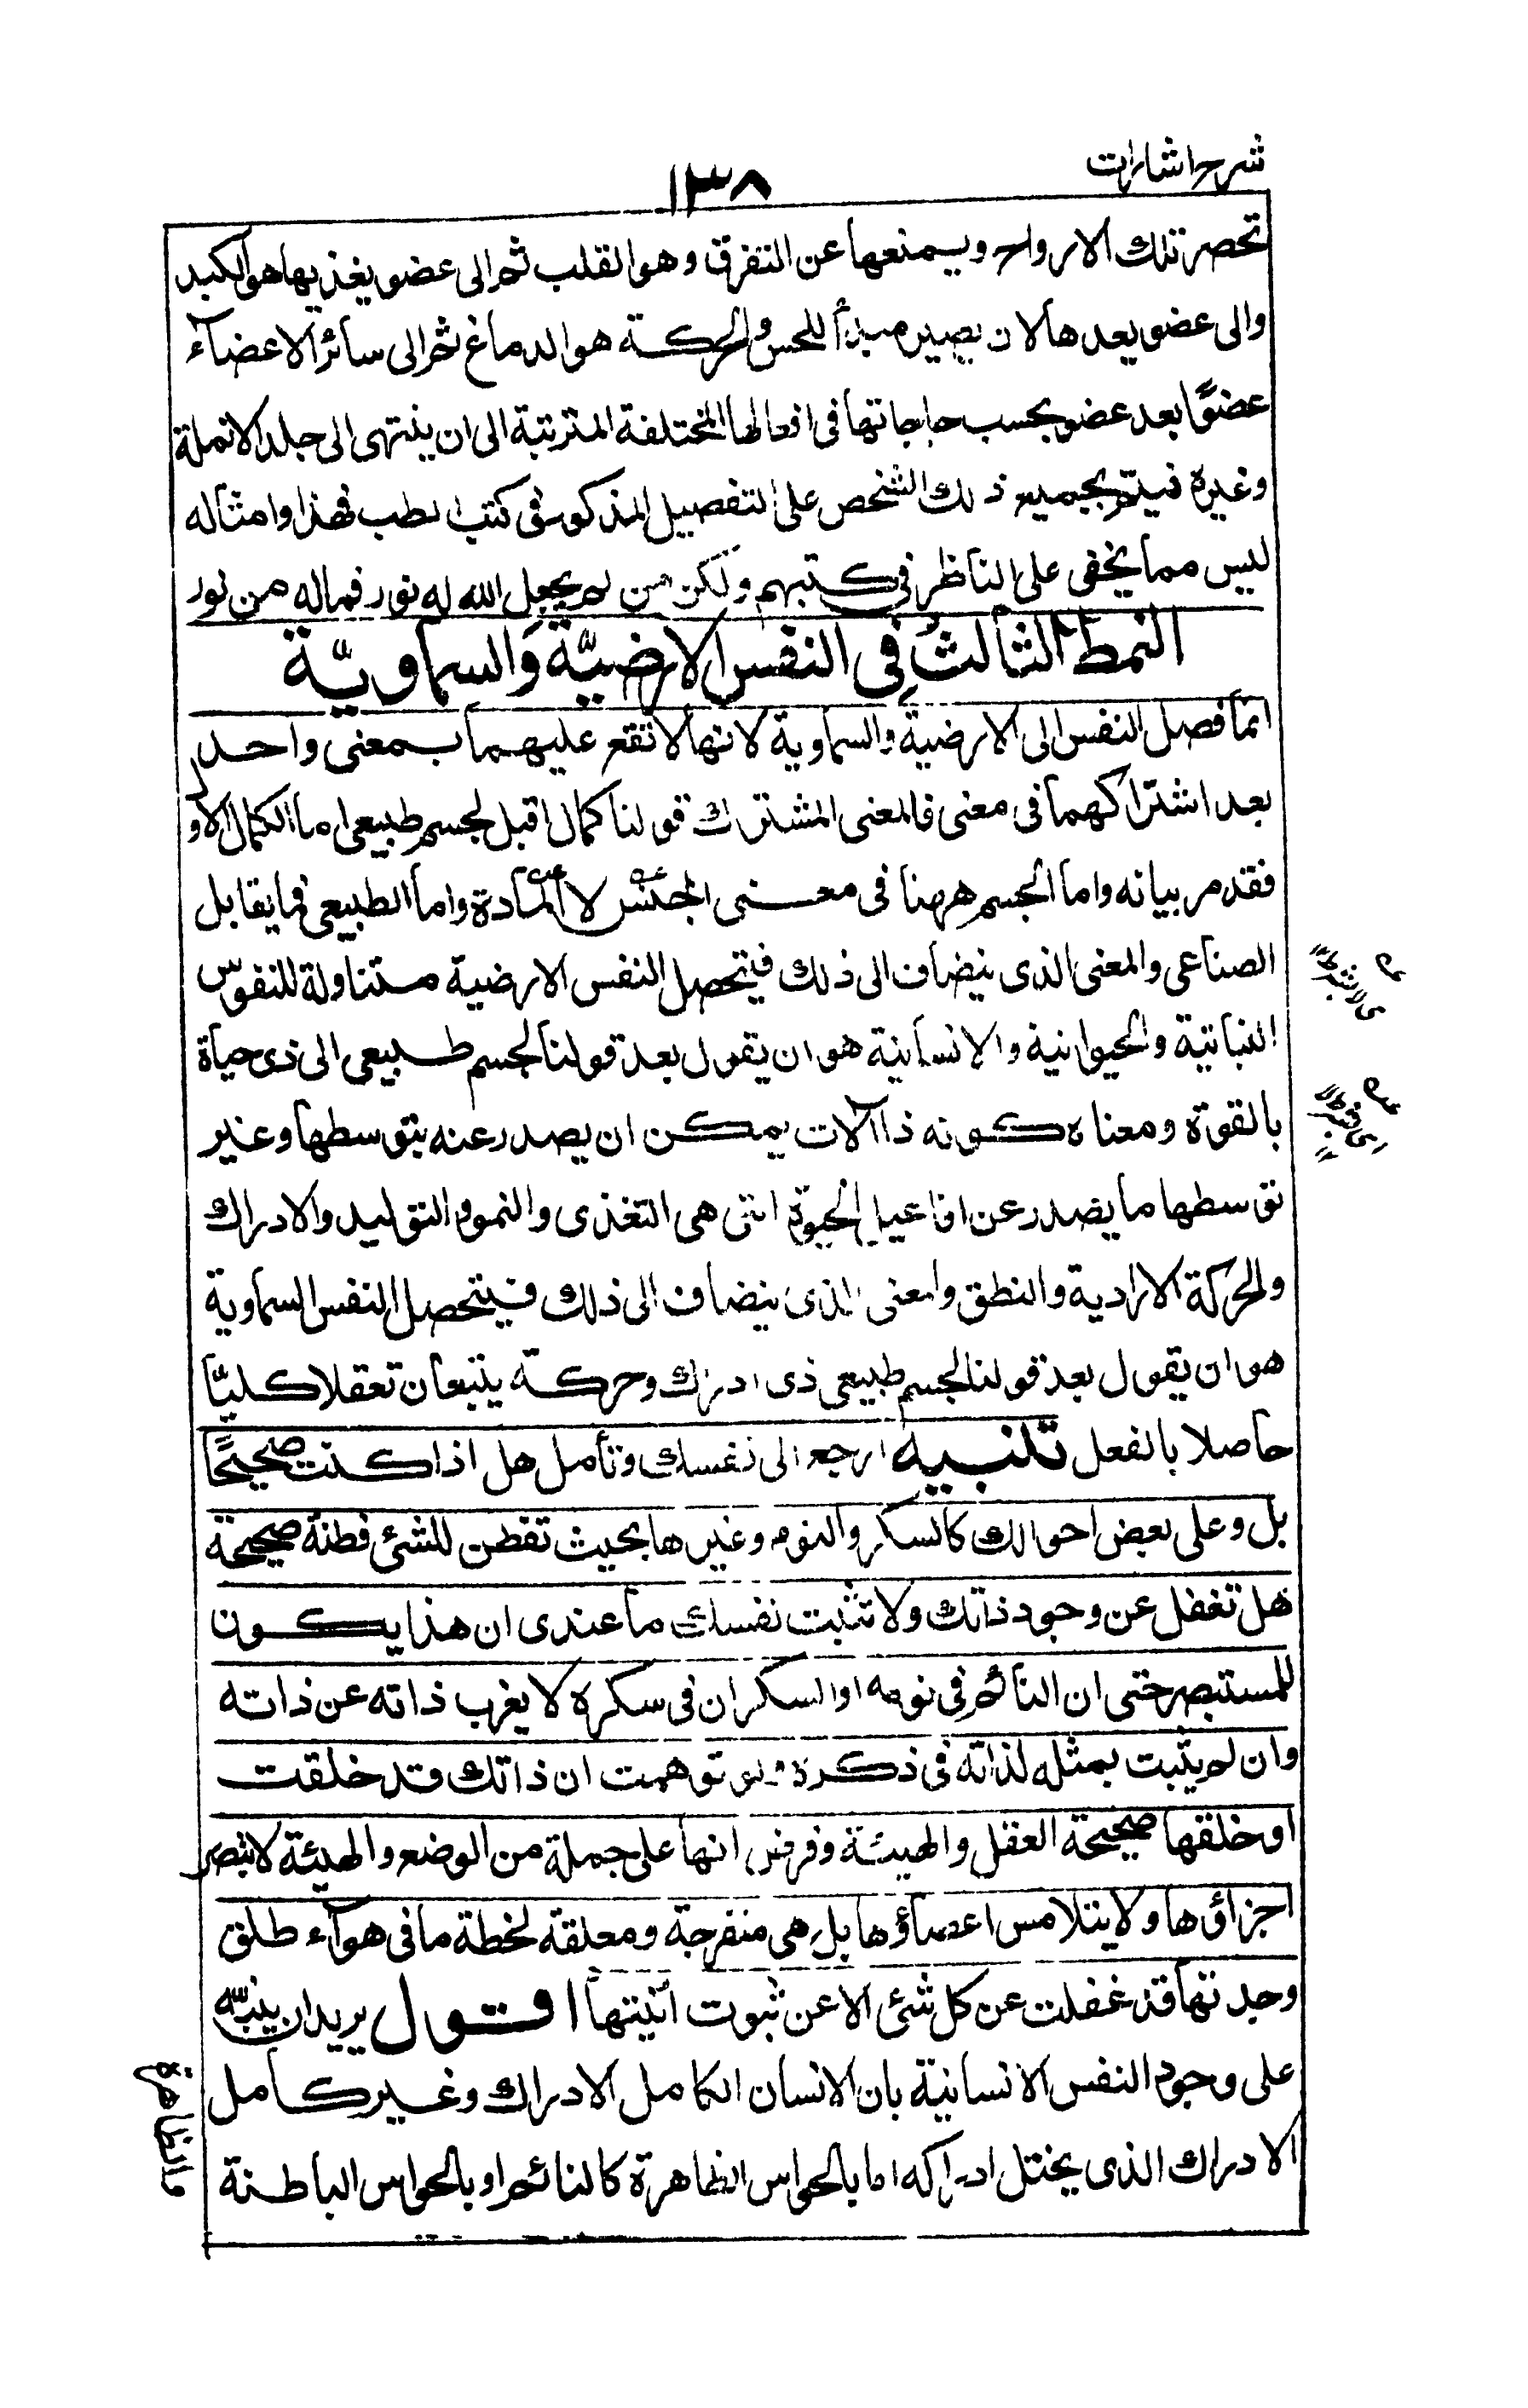 شرح اشارات
١٣٨
تحصر تلك الارواح ويمنعها عن التفرق وهو القلب ثم الى عضو يغذيها هو الكبد
والى عضو يعدها لان يصير مبدأ للحس والحركة هو الدماغ ثم الى سائر الاعضآء
عضوًا بعد عضو بحسب حاجاتها فى افعالها المختلفة المترتبة الى ان ينتهى الى جلد الانملة
وغيره فيتم بجميع ذلك الشخص على التفصيل المذكور فى كتب الطب فهذا وامثاله
ليس مما يخفى على الناظر فى كتبهم ولكن من لم يجعل الله له نور فماله من نور
النمط الثالث فى النفس الارضيّة والسماويّة
انما فصل النفس الى الارضية والسماوية لانها لا تقع عليهما بمعنى واحد
بعد اشتراكهما فى معنى فالمعنى المشترك قولنا كمال اول لجسم طبيعى اما الكمال الاول
فقد مر بيانه واما الجسم ههنا فى معنى الجنس لا المادة واما الطبيعى فما يقابل
الصناعى والمعنى الذى ينضاف الى ذلك فيتحصل النفس الارضية متناولة للنفوس
النباتية والحيوانية والانسانية هو ان يقول بعد قولنا لجسم طبيعى الى ذى حياة
بالقوة ومعناه كونه ذا آلات يمكن ان يصدر عنه بتوسطها وغير
توسطها ما يصدر عن افاعيل الحيوة التى هى التغذى والنمو والتوليد والادراك
والحركة الارادية والنطق والمعنى الذى ينضاف الى ذلك فيتحصل النفس السماوية
هو ان يقول بعد قولنا لجسم طبيعى ذى ادراك وحركة يتبعان تعقلا كليًّا
حاصلا بالفعل تنبيه ارجع الى نفسك وتأمل هل اذا كنت صحيحًا
بل وعلى بعض احوالك كالسكر والنوم وغيرها بحيث تفطن للشئ فطنة صحيحة
هل تغفل عن وجود ذاتك ولا تثبت نفسك ما عندى ان هذا يكون
للمستبصر حتى ان النائم فى نومه او السكران فى سكره لا يغرب ذاته عن ذاته
وان لم يثبت بمثله لذاته فى ذكره ولو توهمت ان ذاتك قد خلقت
او خلقها صحيحة العقل والهيئة وفرض انها على جملة من الوضع والهيئة لا تبصر
اجزاؤها ولا يتلامس اعضاؤها بل هى منفرجة ومعلقة لحظة ما فى هوآء طلق
وجدتها قد غفلت عن كل شئ الا عن ثبوت انيتها اقول يريد ان ينبه
على وجود النفس الانسانية بان الانسان الكامل الادراك وغير كامل
الادراك الذى يختل ادراكه اما بالحواس الظاهرة كالنائم او بالحواس الباطنة
والظاهرة